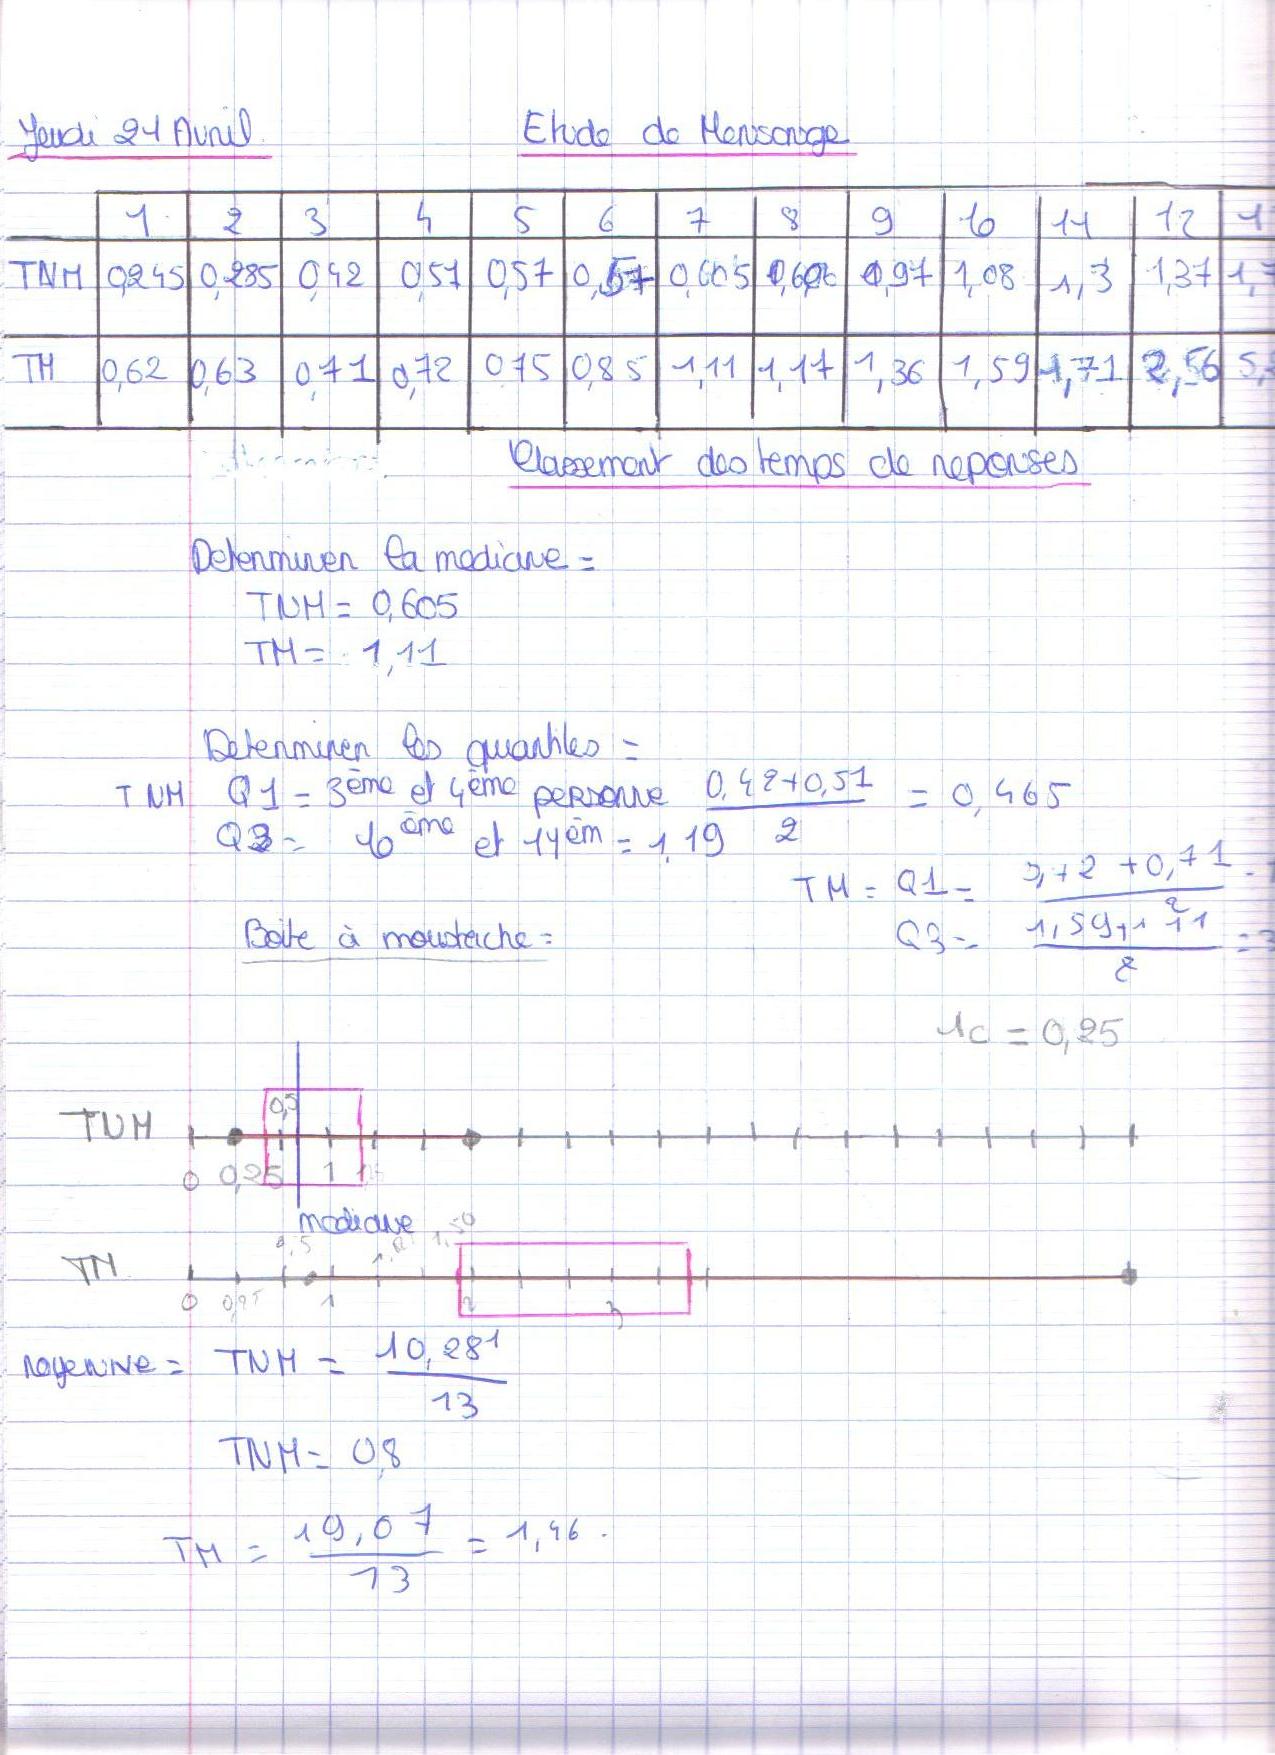 Jeudi 21 Avril Etude de Mensonge
1 2 3 4 5 6 7 8 9 10 11 12
TNM 0,245 0,285 0,42 0,51 0,57 0,57 0,605 0,606 0,97 1,08 1,3 1,37 1,
TM 0,62 0,63 0,71 0,72 0,75 0,85 1,11 1,17 1,36 1,59 1,71 2,56 5,
Classement des temps de reponses
Determiner la mediane =
TNM = 0,605
TM = 1,11
Determiner les quartiles =
TNM Q1 = 3ème et 4ème personne 0,42+0,51 / 2 = 0,465
Q3 = 10ème et 11èm = 1,19
TM = Q1 = 0,72 + 0,71 / 2
Q3 = 1,59+1,71 / 2 =
Boite à moustache =
1c = 0,25
0,5
TNM
0 0,25 1
mediane
0,5 1,50
TM
0 0,25 1 2 3
moyenne = TNM = 10,281 / 13
TNM = 0,8
TM = 19,07 / 13 = 1,46.